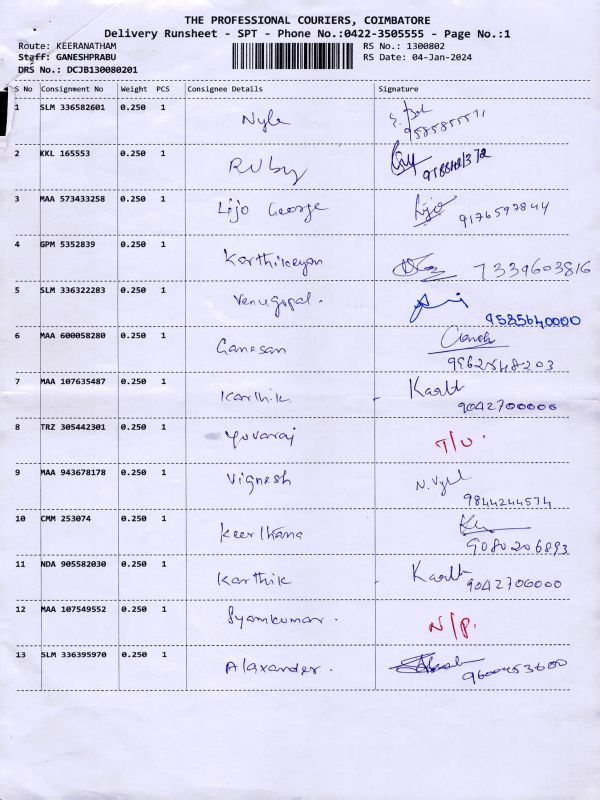 THE PROFESSIONAL COURIERS, COIMBATORE
Delivery Runsheet - SPT - Phone No.:0422-3505555 - Page No.:1
Route: KEERANATHAM RS No.: 1300802
Staff: GANESHPRABU RS Date: 04-Jan-2024
DRS No.: DCJB130080201
S No Consignment No Weight PCS Consignee Details Signature
1 SLM 336582601 0.250 1 Nyle
2 KKL 165553 0.250 1 Ruby
3 MAA 573433258 0.250 1 Lijo George Lijo
9176597844
4 GPM 5352839 0.250 1 Karthikeyan 7339603816
5 SLM 336322283 0.250 1 Venugopal.
9585640000
6 MAA 600058280 0.250 1 Ganesan
9962548203
7 MAA 107635487 0.250 1 Karthik
9042700000
8 TRZ 305442301 0.250 1 Yuvaraj T/U.
9 MAA 943678178 0.250 1 Vignesh
9844244574
10 CMM 253074 0.250 1 Keerthana
9080206893
11 NDA 905582030 0.250 1 Karthik
9042700000
12 MAA 107549552 0.250 1 Syamkumar. N/P.
13 SLM 336395970 0.250 1 Alaxander.